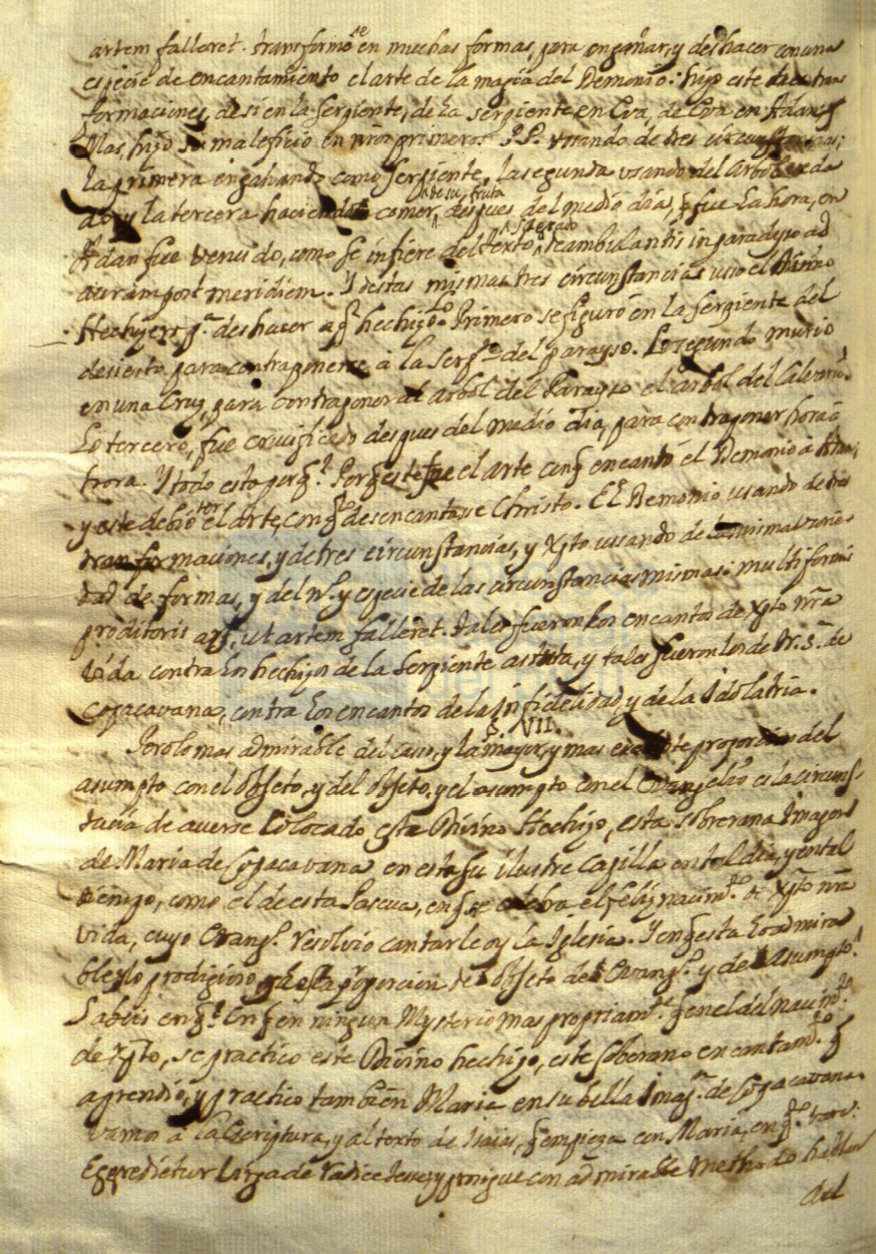 artem falleret. transformose en muchas formas, para engañar, y deshacer con una
especie de encantamiento el arte de la magia del Demonio: hizo este tres trans
formaciones, de si en la serpiente, de la serpiente en Eva, de Eva en Adan; y
Mas, hizo su maleficio en nros primeros P.P. usando de tres circunstancias;
la primera engañando como serpiente, la segunda usando del arbol
y la tercera haciendo comer, de su fruta despues del medio dia, q fue la hora, en q
Adan fue vencido, como se infiere del texto sagrado: deambulantis in paradyso ad
auram post meridiem. Y destas mismas tres circunstancias uso el Divino
Hechizero pa. deshacer aql hechizo. Lo Primero se figuró en la serpiente del
desierto, para contraponerse à la serpte. del parayso. Lo segundo murio
en una Cruz, para contraponer al arbol del Parayso el arbol del Calvario.
Lo tercero, fue crucificado despues del medio dia, para contraponer hora à
hora. Y todo esto porq? Porq este fue el arte con q encantò el Demonio à Adan;
y este debió ser el arte, con q lo desencantase Christo. El Demonio usando de tres
transformaciones, y de tres circunstancias, y Xpto usando de la misma varie
dad de formas, y del no. y especie de las circunstancias mismas: multiformis
proditoris ars, ut artem falleret. Tales fueron los encantos de Xpto nra
vida contra los hechizos de la serpiente astuta, y tales fueron los de N. S. de
Copacavana, contra los encantos de la Infidelidad, y de la Idolatria.
§. VII.
Pero lo mas admirable del caso, y la mayor, y mas excelente proporcion del
asumpto con el objeto, y del objeto, y el asumpto con el Evangelio es la circuns-
tancia de averse colocado esta Divino Hechizo, esta soberana Imagen
de Maria de Copacavana en esta su ilustre Capilla en tal dia, y en tal
tiempo, como el de esta Pascua, en q se celebra el feliz nacimto. de Xpto nra
vida, cuyo Evango. resolvio cantarle oy la Iglesia. Y en q esta lo admira
ble, y lo prodigioso de esta proporcion de objeto del Evango. y de Asumpto?
Sabeis en q? En q en ningun Mysterio mas propriamte. q en el del nacimto.
de Xpto, se practico este Divino hechizo, este soberano encantamto. q
aprendió, y practico tambien Maria en su bella Imagn. de Copacavana.
Vamos à la Escriptura, y al texto de Isaias, q empieza con Maria, en
Egredietur virga de radice Jesse, y prosigue con admirable methodo hablar
del